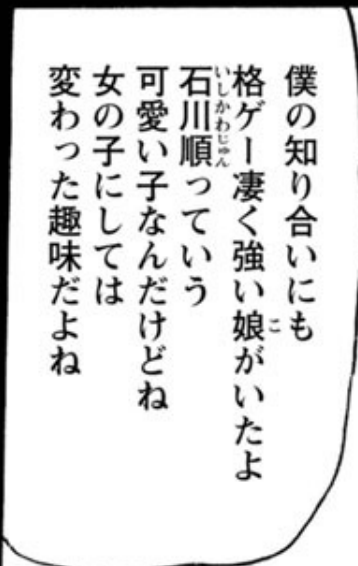 僕の知り合いにも
格ゲー凄く強い娘がいたよ
石川順っていう
可愛い子なんだけどね
女の子にしては
変わった趣味だよね